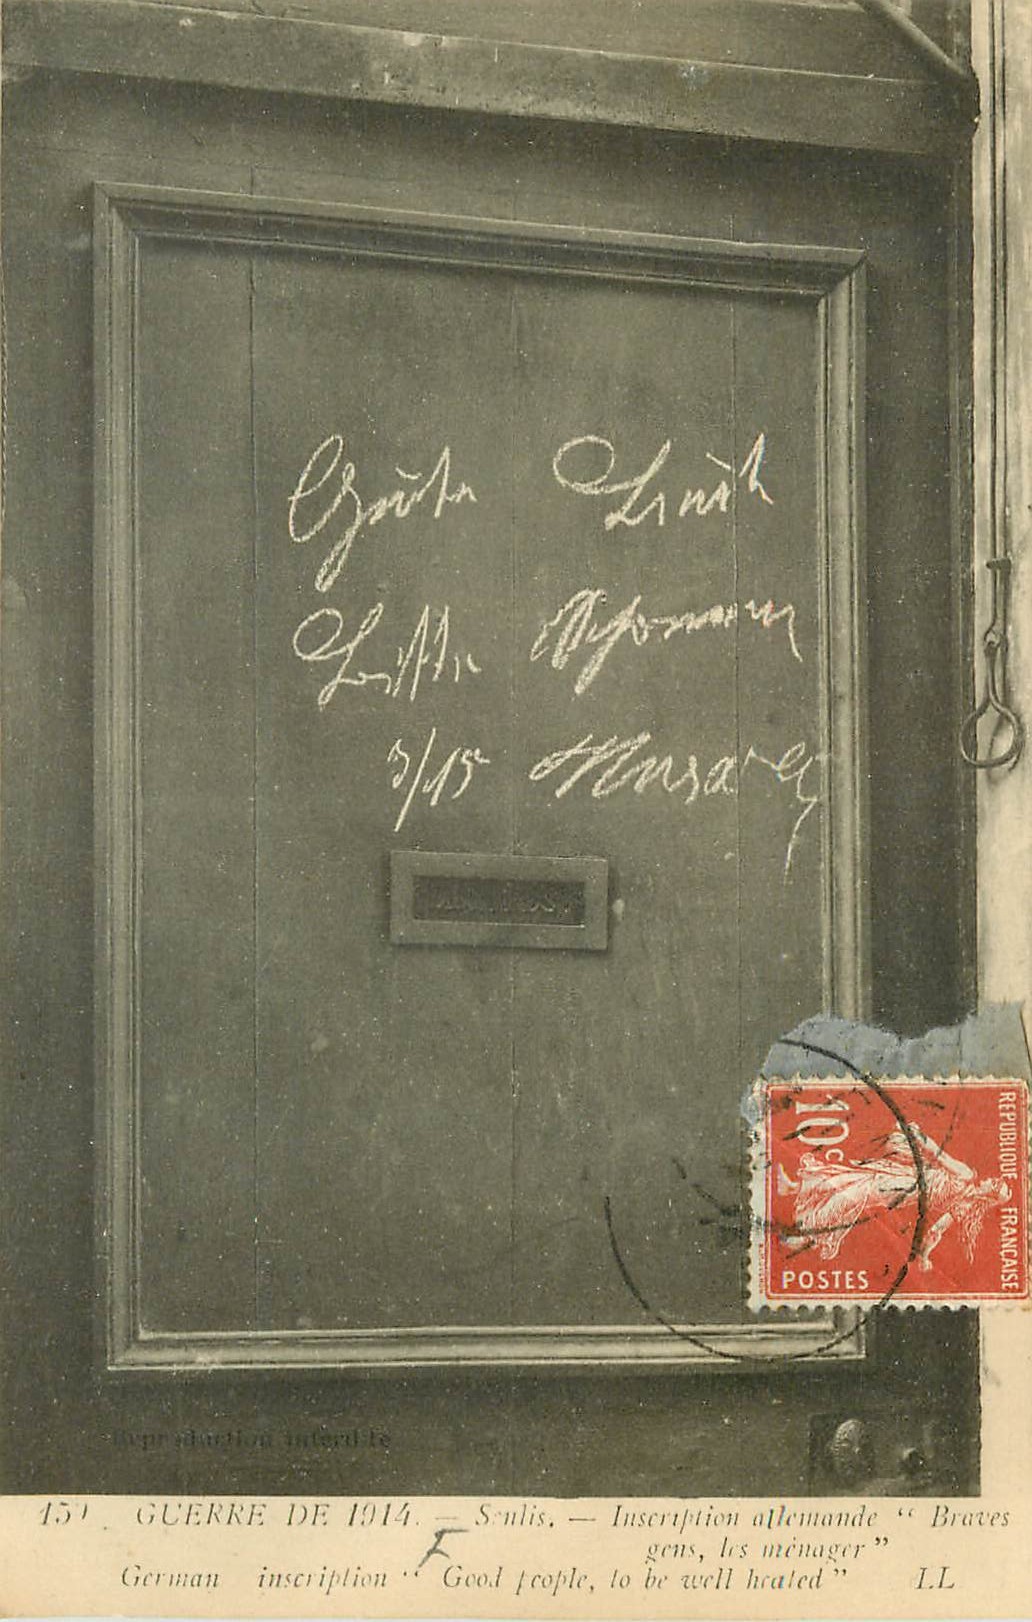 Gute Leute
Bitte Schonen
3/15
Reproduction interdite
10c
REPUBLIQUE FRANÇAISE
POSTES
GUERRE DE 1914. — Senlis. — Inscription allemande “ Braves
gens, les ménager ”
F
German inscription “ Good people, to be well heated ” LL